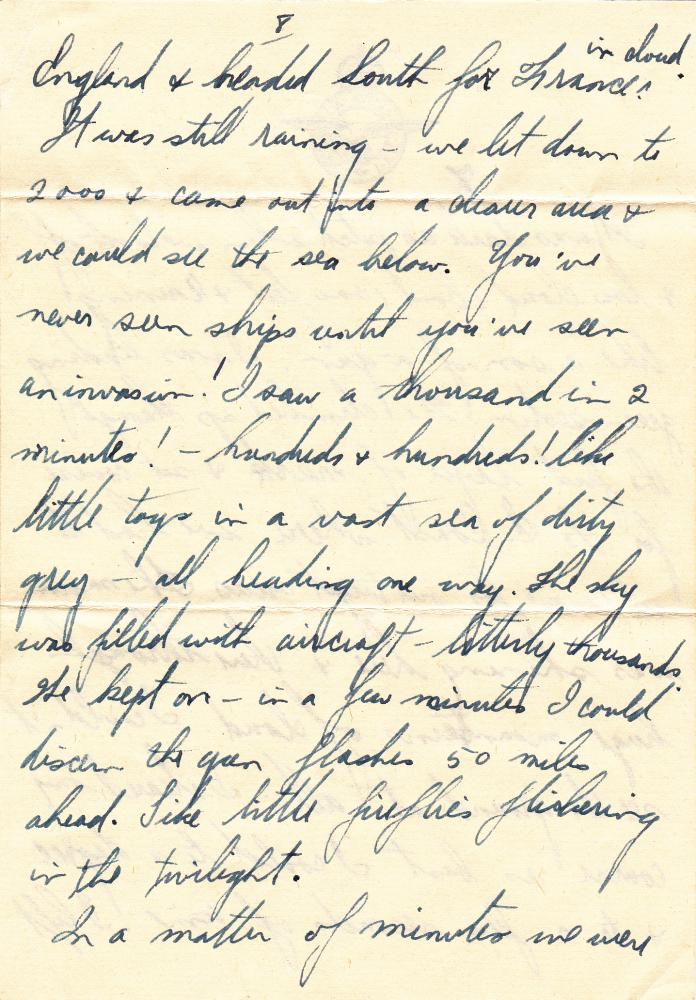 8
in cloud.
England & headed South for France!
It was still raining - we let down to
2000 & came out into a clearer area &
we could see the sea below. You've
never seen ships until you've seen
an invasion! I saw a thousand in 2
minutes! - hundreds & hundreds! like
little toys in a vast sea of dirty
grey - all heading one way. The sky
was filled with aircraft - litterly thousands.
We kept on - in a few minutes I could
discern the gun flashes 50 miles
ahead. Like little fireflies flickering
in the twilight.
In a matter of minutes we were